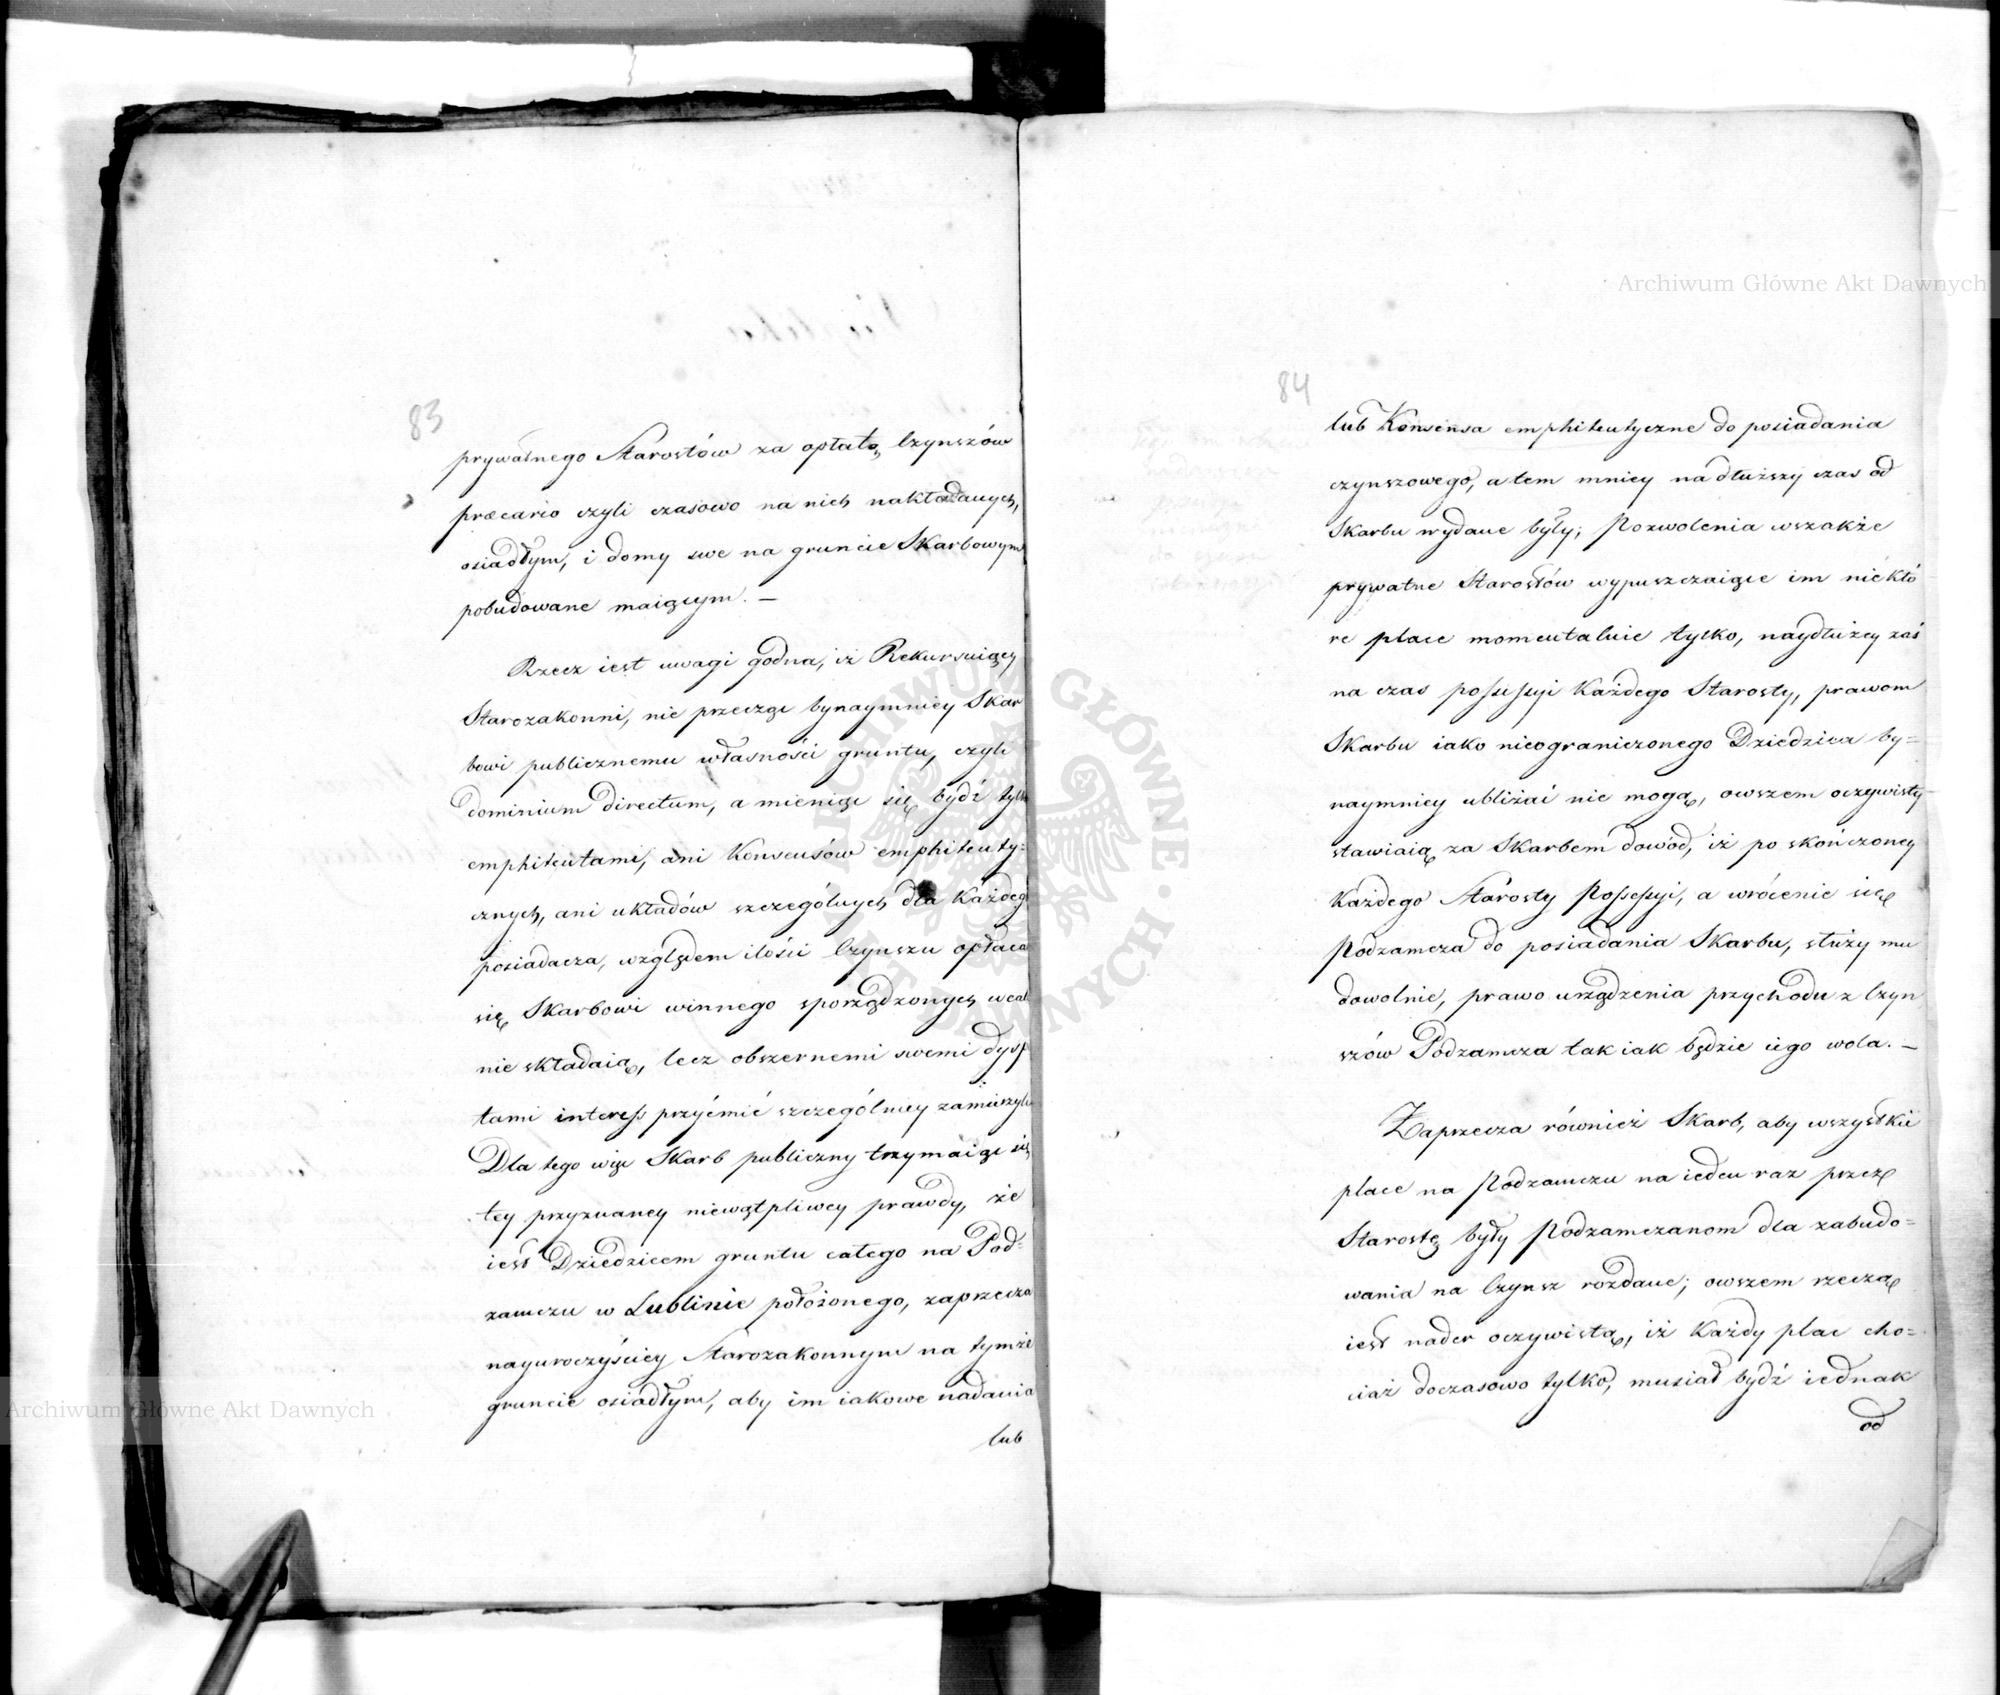 83
prywatnego Starostów za opłatą Czynszów
præcario czyli czasowo na nich nakładanych,
osiadłym, i domy swe na gruncie Skarbowym
pobudowane maiącym. —
Rzecz iest uwagi godna, iż Rekursuiący
Starozakonni, nie przecząc bynaymniey Skar
bowi publicznemu własności gruntu, czyli
dominium directum, a mieniąc się bydź tylko
emphiteutami, ani Konsensów emphiteuty=
cznych, ani układów szczególnych dla Każdego
posiadacza, względem ilości Czynszu opłaca
się Skarbowi winnego sporządzonych wcale
nie składaią, lecz obszernemi swemi dysp
tami interess przyćmić szczególniey zamierzyli
Dla tego więc Skarb publiczny trzymaiąc się
tey przyznaney niewątpliwey prawdy, że
iest Dziedzicem gruntu całego na Pod=
zamczu w Lublinie położonego, zaprzecza
nayuroczyściey Starozakonnym na tymże
gruncie osiadłym, aby im iakowe nadania
lub
84
lub Konsensa emphiteutyczne do posiadania
czynszowego, a tem mniey na dłuższy czas od
Skarbu wydane były; Pozwolenia wszakże
prywatne Starostów wypuszczaiące im niektó
re place momentalnie tylko, naydłużey zaś
na czas possessyi Każdego Starosty, prawom
Skarbu iako nieograniczonego Dziedzica by=
naymniey ubliżać nie mogą, owszem oczywisty
stawiaią za Skarbem dowód, iż po skończoney
Każdego Starosty Possessyi, a wrócenie się
Podzamcza do posiadania Skarbu, służy mu
dowolnie, prawo urządzenia przychodu z Czyn
szów Podzamcza tak iak będzie iego wola. —
Zaprzecza również Skarb, aby wszystkie
place na Podzamczu na ieden raz przez
Starostę były Podzamczanom dla zabudo=
wania na Czynsz rozdane; owszem rzeczą
iest nader oczywistą, iż Każdy plac cho=
ciaż doczasowo tylko, musiał bydź iednak
od
Archiwum Główne Akt Dawnych
Archiwum Główne Akt Dawnych
ARCHIWUM GŁÓWNE AKT DAWNYCH